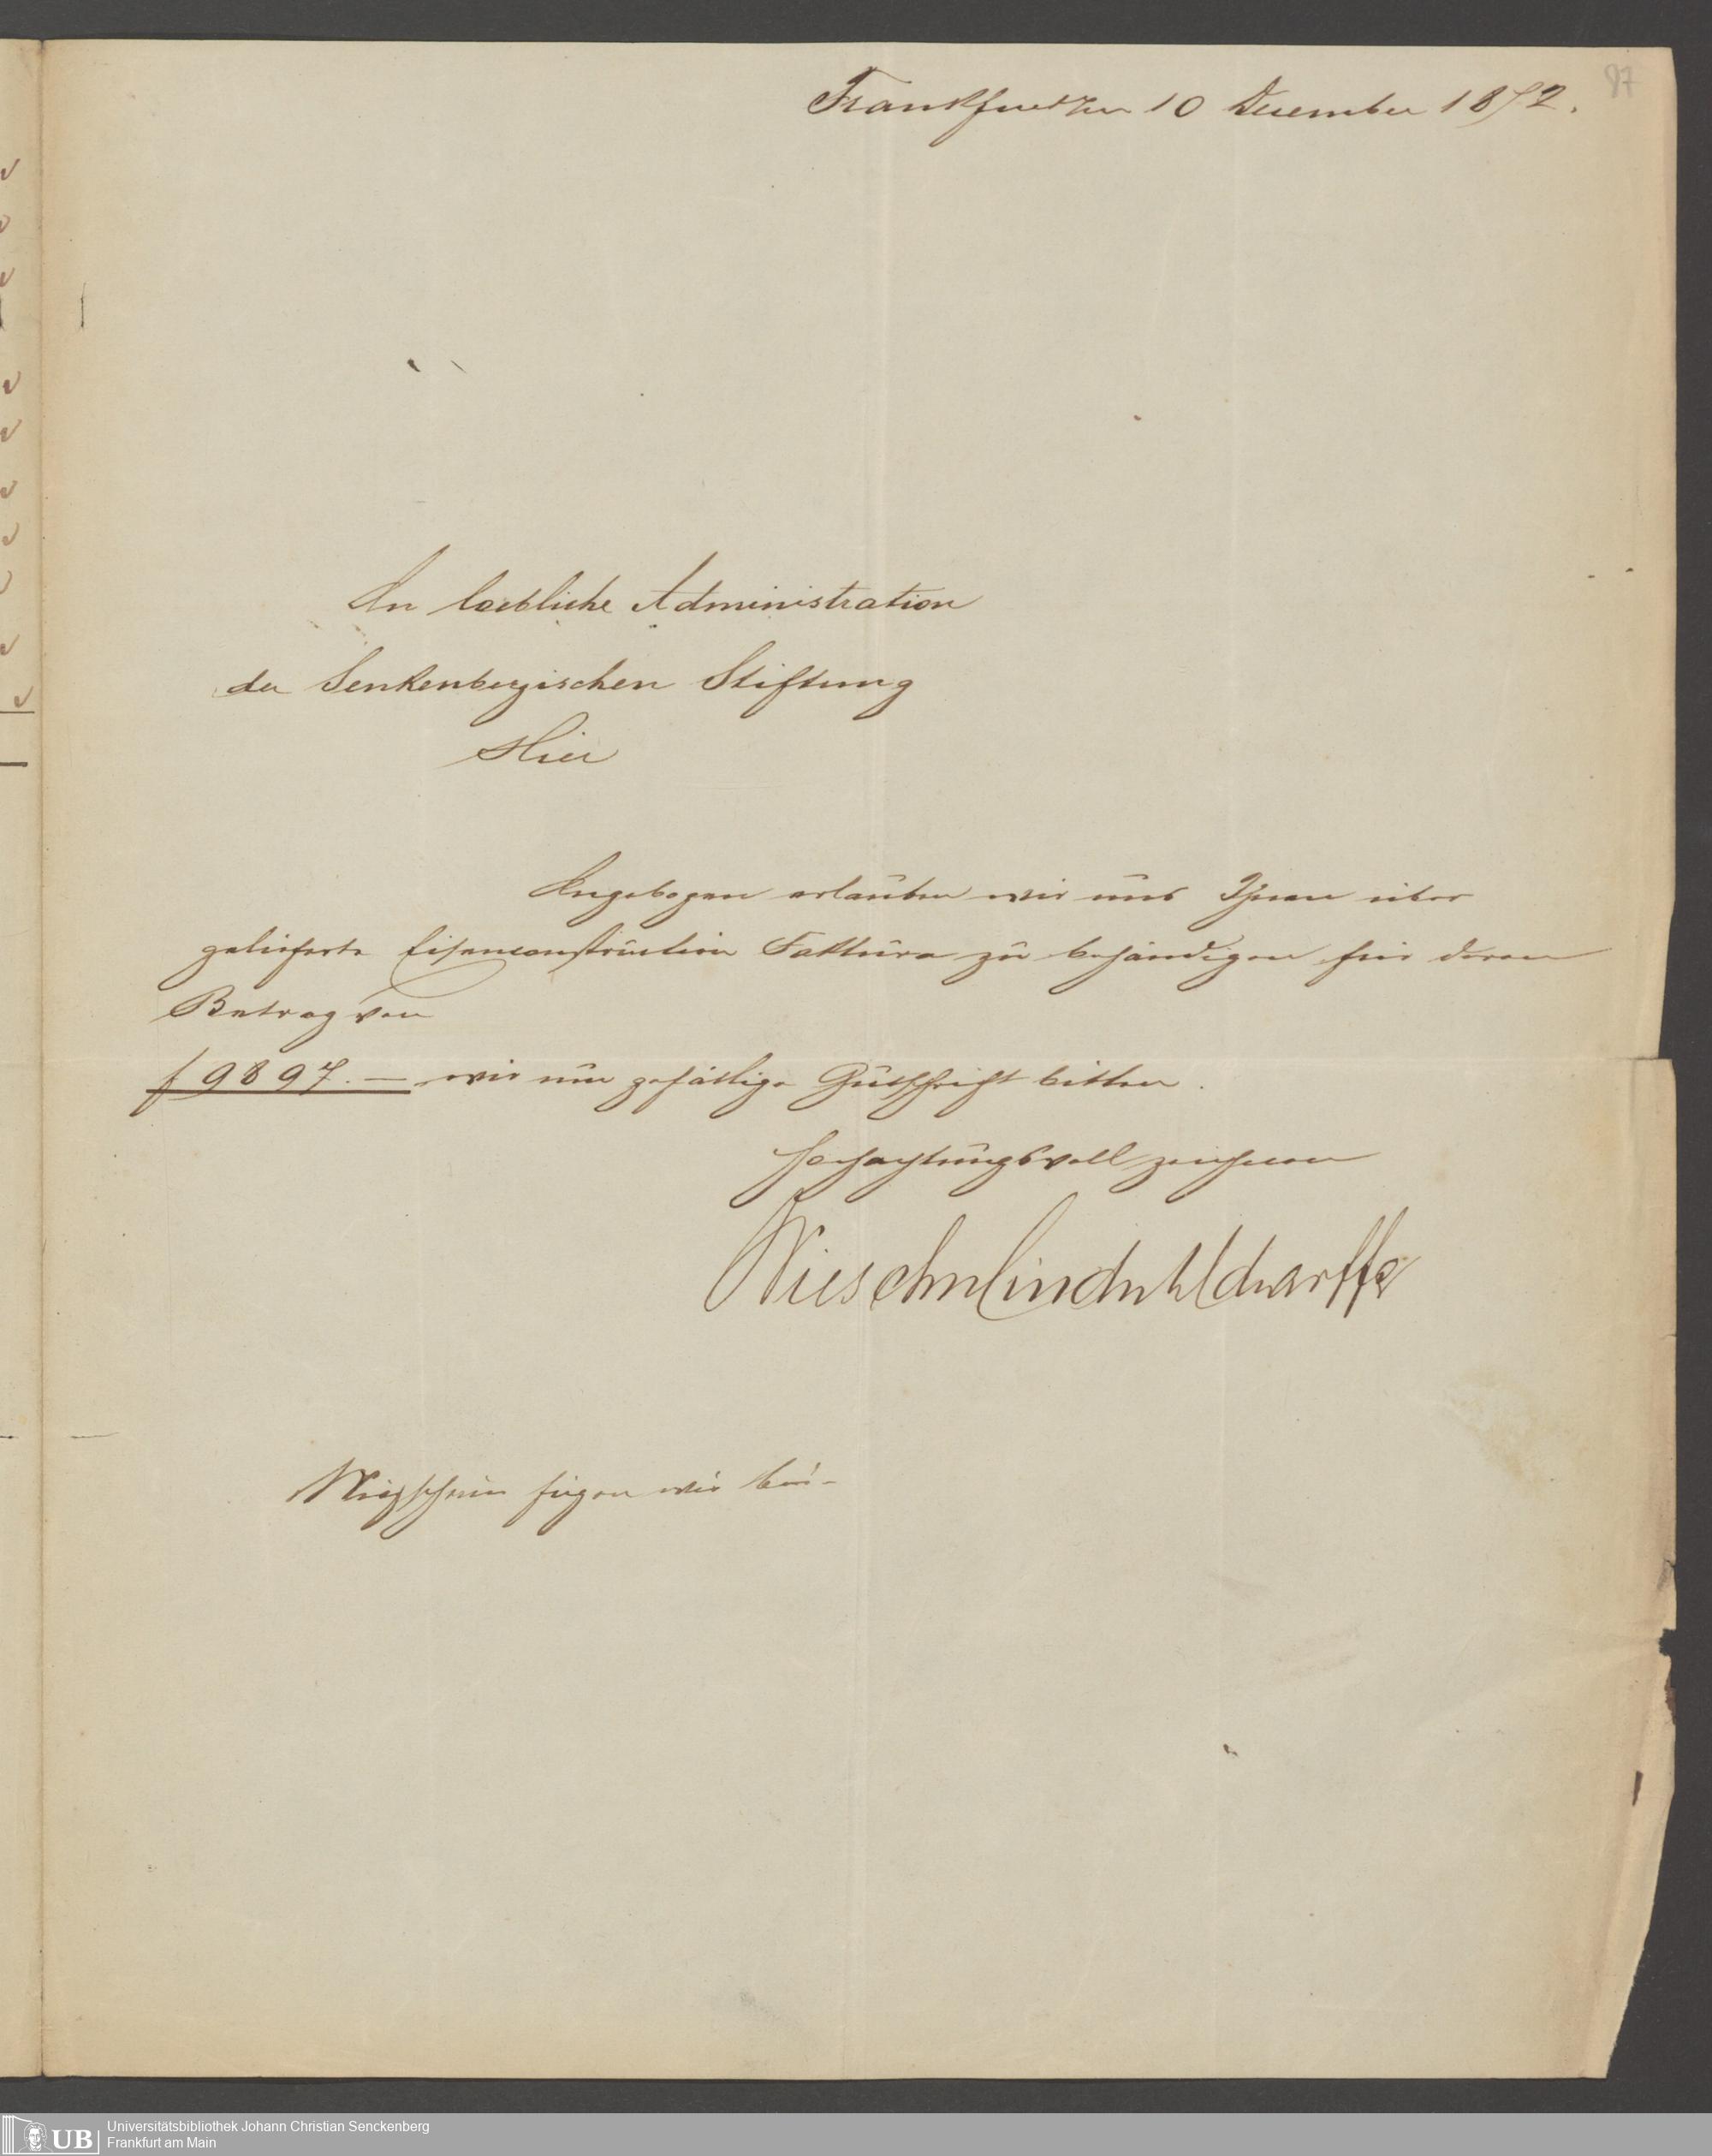 87
Frankfurt den 10 Dezember 1872.
An loebliche Administration
der Senkenbergischen Stiftung
Hier
Angebogen erlauben wir uns Ihnen über
gelieferte Eisenconstruction Faktura zu behändigen für deren
Betrag von
f 9897.— wir um gefällige Gutschrift bitten.
Hochachtungsvoll zeichnen
fügen wir bei-
UB
Universitätsbibliothek Johann Christian Senckenberg
Frankfurt am Main